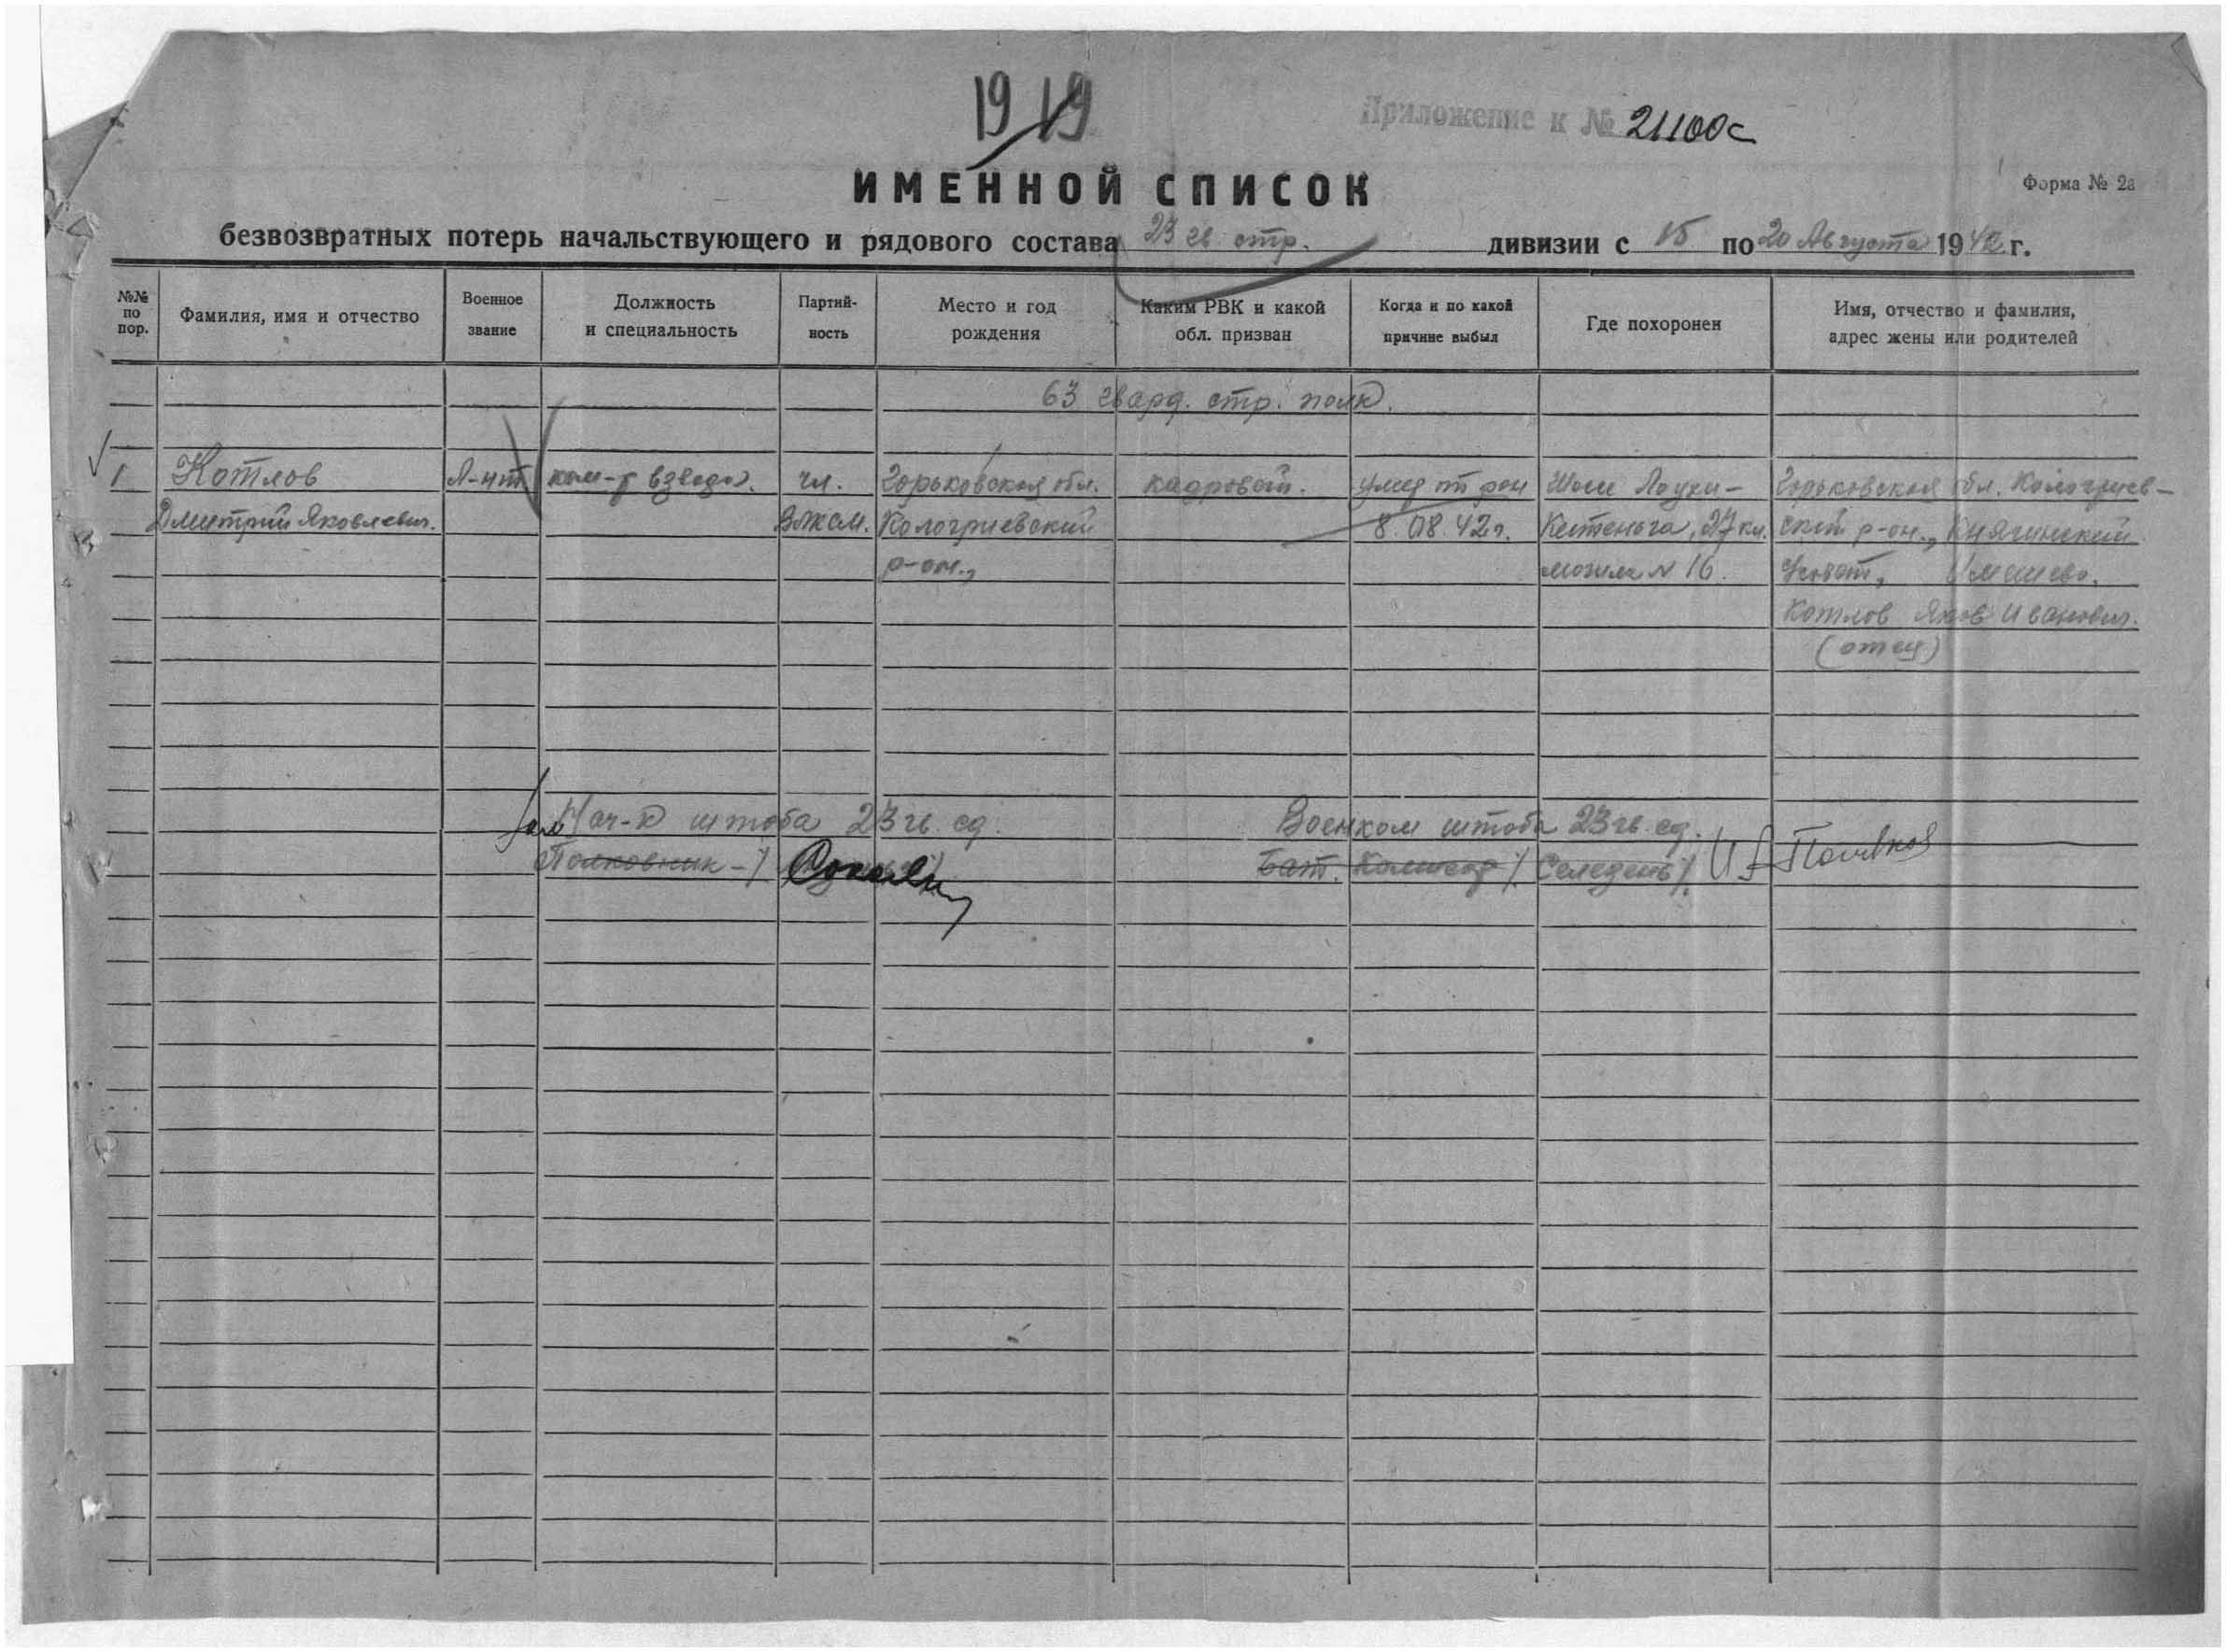 19 19
Приложение к № 21100с
ИМЕННОЙ СПИСОК
Форма № 2а
безвозвратных потерь начальствующего и рядового состава 23 гв. стр. дивизии с 15 по 20 Августа 1942 г.
№№ по пор.
Фамилия, имя и отчество
Военное звание
Должность и специальность
Партийность
Место и год рождения
Каким РВК и какой обл. призван
Когда и по какой причине выбыл
Где похоронен
Имя, отчество и фамилия, адрес жены или родителей
63 гвард. стр. полк.
1 Котлов Л-нт ком-р взвода. чл. Горьковская обл. кадровый. умер от ран Шоссе Лоухи- Горьковская обл. Кологрив-
Дмитрий Яковлевич. ВЛКСМ. Кологривский 8.08.42г. Кестеньга, 27 км. ский р-он., Княгинский
р-он., могила № 16.
Котлов Яков Иванович.
(отец)
Нач-к штаба 23 гв. сд. Военком штаба 23 гв. сд.
Полковник -/ Бат. Комиссар /Селедень/.